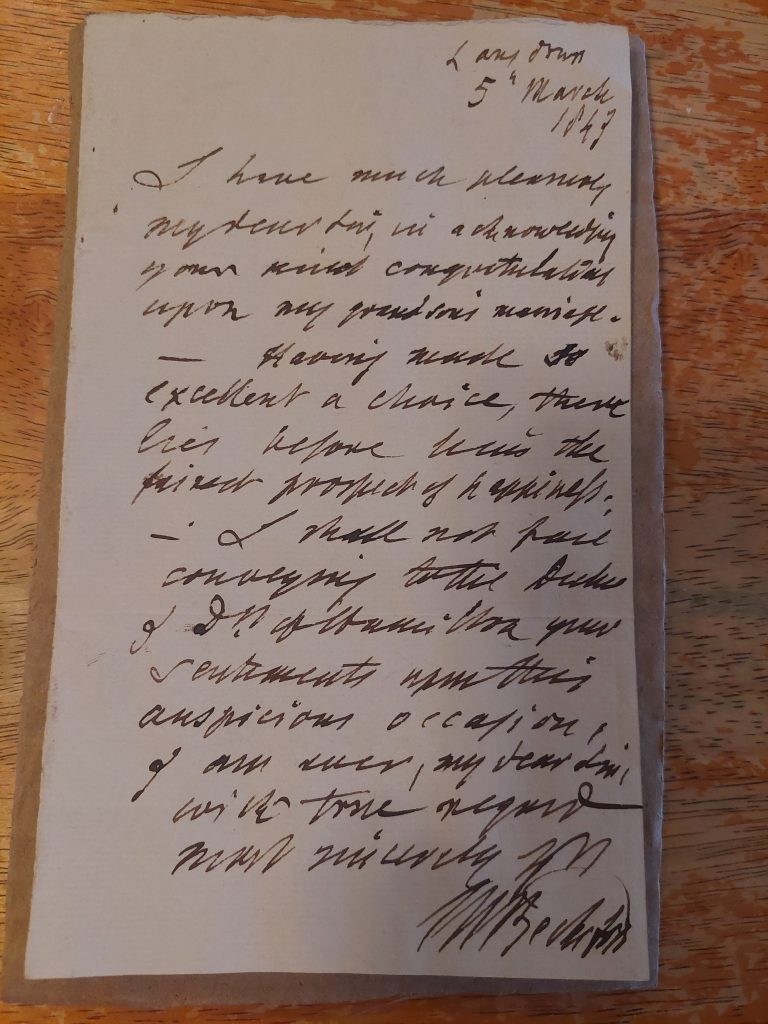 Lansdown
5" March
1843
I have much pleasure,
my dear Sir, in acknowledging
your kind congratulations
upon my grandson's marriage.
— Having made so
excellent a choice, there
lies before him the
fairest prospect of happiness.
— I shall not fail
conveying to the Duke
& Dss of Hamilton your
sentiments upon this
auspicious occasion,
& am ever, my dear Sir,
with true regard
most sincerely yrs
WBeckford